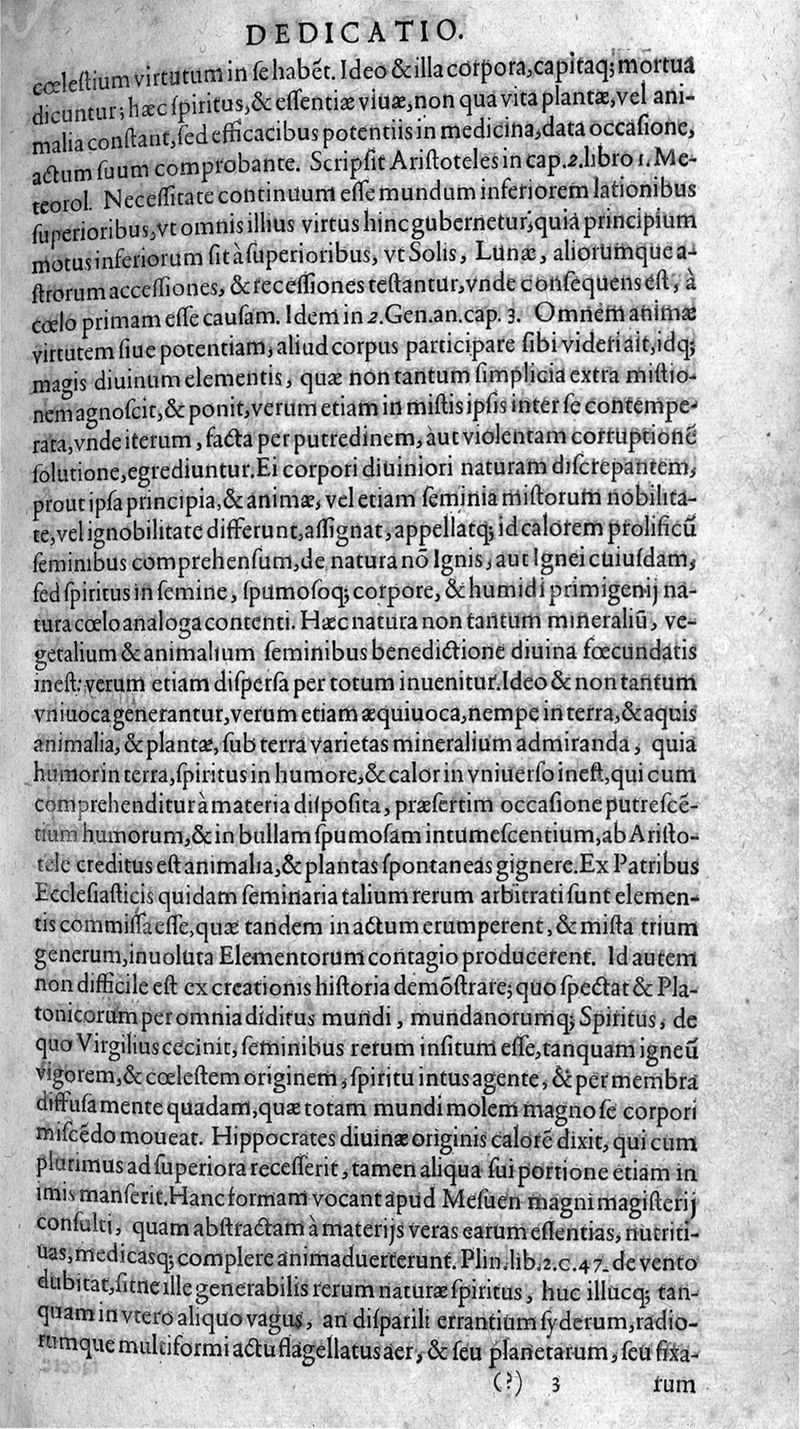 DEDICATIO.
cœleſtium virtutum in ſe habẽt. Ideo & illa corpora, capitaq; mortua
dicuntur; hæc ſpiritus, & eſſentiæ viuæ, non qua vita plantæ, vel ani-
malia conſtant, ſed efficacibus potentiis in medicina, data occaſione,
actum ſuum comprobante. Scripſit Ariſtoteles in cap. 2. libro 1. Me-
teorol. Neceſſitate continuum eſſe mundum inferiorem lationibus
ſuperioribus, vt omnis illius virtus hinc gubernetur, quia principium
motus inferiorum ſit à ſuperioribus, vt Solis, Lunæ, aliorumque a-
ſtrorum acceſſiones, & receſſiones teſtantur, vnde conſequens eſt, à
cœlo primam eſſe cauſam. Idem in 2. Gen. an. cap. 3. Omnem animæ
virtutem ſiue potentiam, aliud corpus participare ſibi videri ait, idq;
magis diuinum elementis, quæ non tantum ſimplicia extra miſtio-
nem agnoſcit, & ponit, verum etiam in miſtis ipſis inter ſe contempe-
rata, vnde iterum, facta per putredinem, aut violentam corruptionẽ
ſolutione, egrediuntur. Ei corpori diuiniori naturam diſcrepantem,
prout ipſa principia, & animæ, vel etiam ſeminia miſtorum nobilita-
te, vel ignobilitate differunt, aſſignat, appellatq; id calorem prolificũ
ſeminibus comprehenſum, de natura nõ Ignis, aut Ignei cuiuſdam,
ſed ſpiritus in ſemine, ſpumoſoq; corpore, & humidi primigenij na-
tura cœlo analoga contenti. Hæc natura non tantum mineraliũ, ve-
getalium & animalium ſeminibus benedictione diuina fœcundatis
ineſt: verum etiam diſperſa per totum inuenitur. Ideo & non tantum
vniuoca generantur, verum etiam æquiuoca, nempe in terra, & aquis
animalia, & plantæ, ſub terra varietas mineralium admiranda, quia
humor in terra, ſpiritus in humore, & calor in vniuerſo ineſt, qui cum
comprehenditur à materia diſpoſita, præſertim occaſione putreſcẽ-
tium humorum, & in bullam ſpumoſam intumeſcentium, ab Ariſto-
tele creditus eſt animalia, & plantas ſpontaneas gignere. Ex Patribus
Eccleſiaſticis quidam ſeminaria talium rerum arbitrati ſunt elemen-
tis commiſſa eſſe, quæ tandem in actum erumperent, & miſta trium
generum, inuoluta Elementorum contagio producerent. Id autem
non difficile eſt ex creationis hiſtoria demõſtrare; quo ſpectat & Pla-
tonicorum per omnia diditus mundi, mundanorumq; Spiritus, de
quo Virgilius cecinit, ſeminibus rerum inſitum eſſe, tanquam igneũ
vigorem, & cœleſtem originem, ſpiritu intus agente, & per membra
diffuſa mente quadam, quæ totam mundi molem magno ſe corpori
miſcẽdo moueat. Hippocrates diuinæ originis calorẽ dixit, qui cum
plurimus ad ſuperiora receſſerit, tamen aliqua ſui portione etiam in
imis manſerit. Hanc formam vocant apud Meſuen magni magiſterij
conſulti, quam abſtractam à materijs veras earum eſſentias, nutriti-
uas, medicasq; complere animaduerterunt. Plin. lib. 2. c. 47. de vento
dubitat, ſitne ille generabilis rerum naturæ ſpiritus, huc illucq; tan-
quam in vtero aliquo vagus, an diſparili errantium ſyderum, radio-
rumque multiformi actu flagellatus aer, & ſeu planetarum, ſeu fixa-
(?) 3 rum